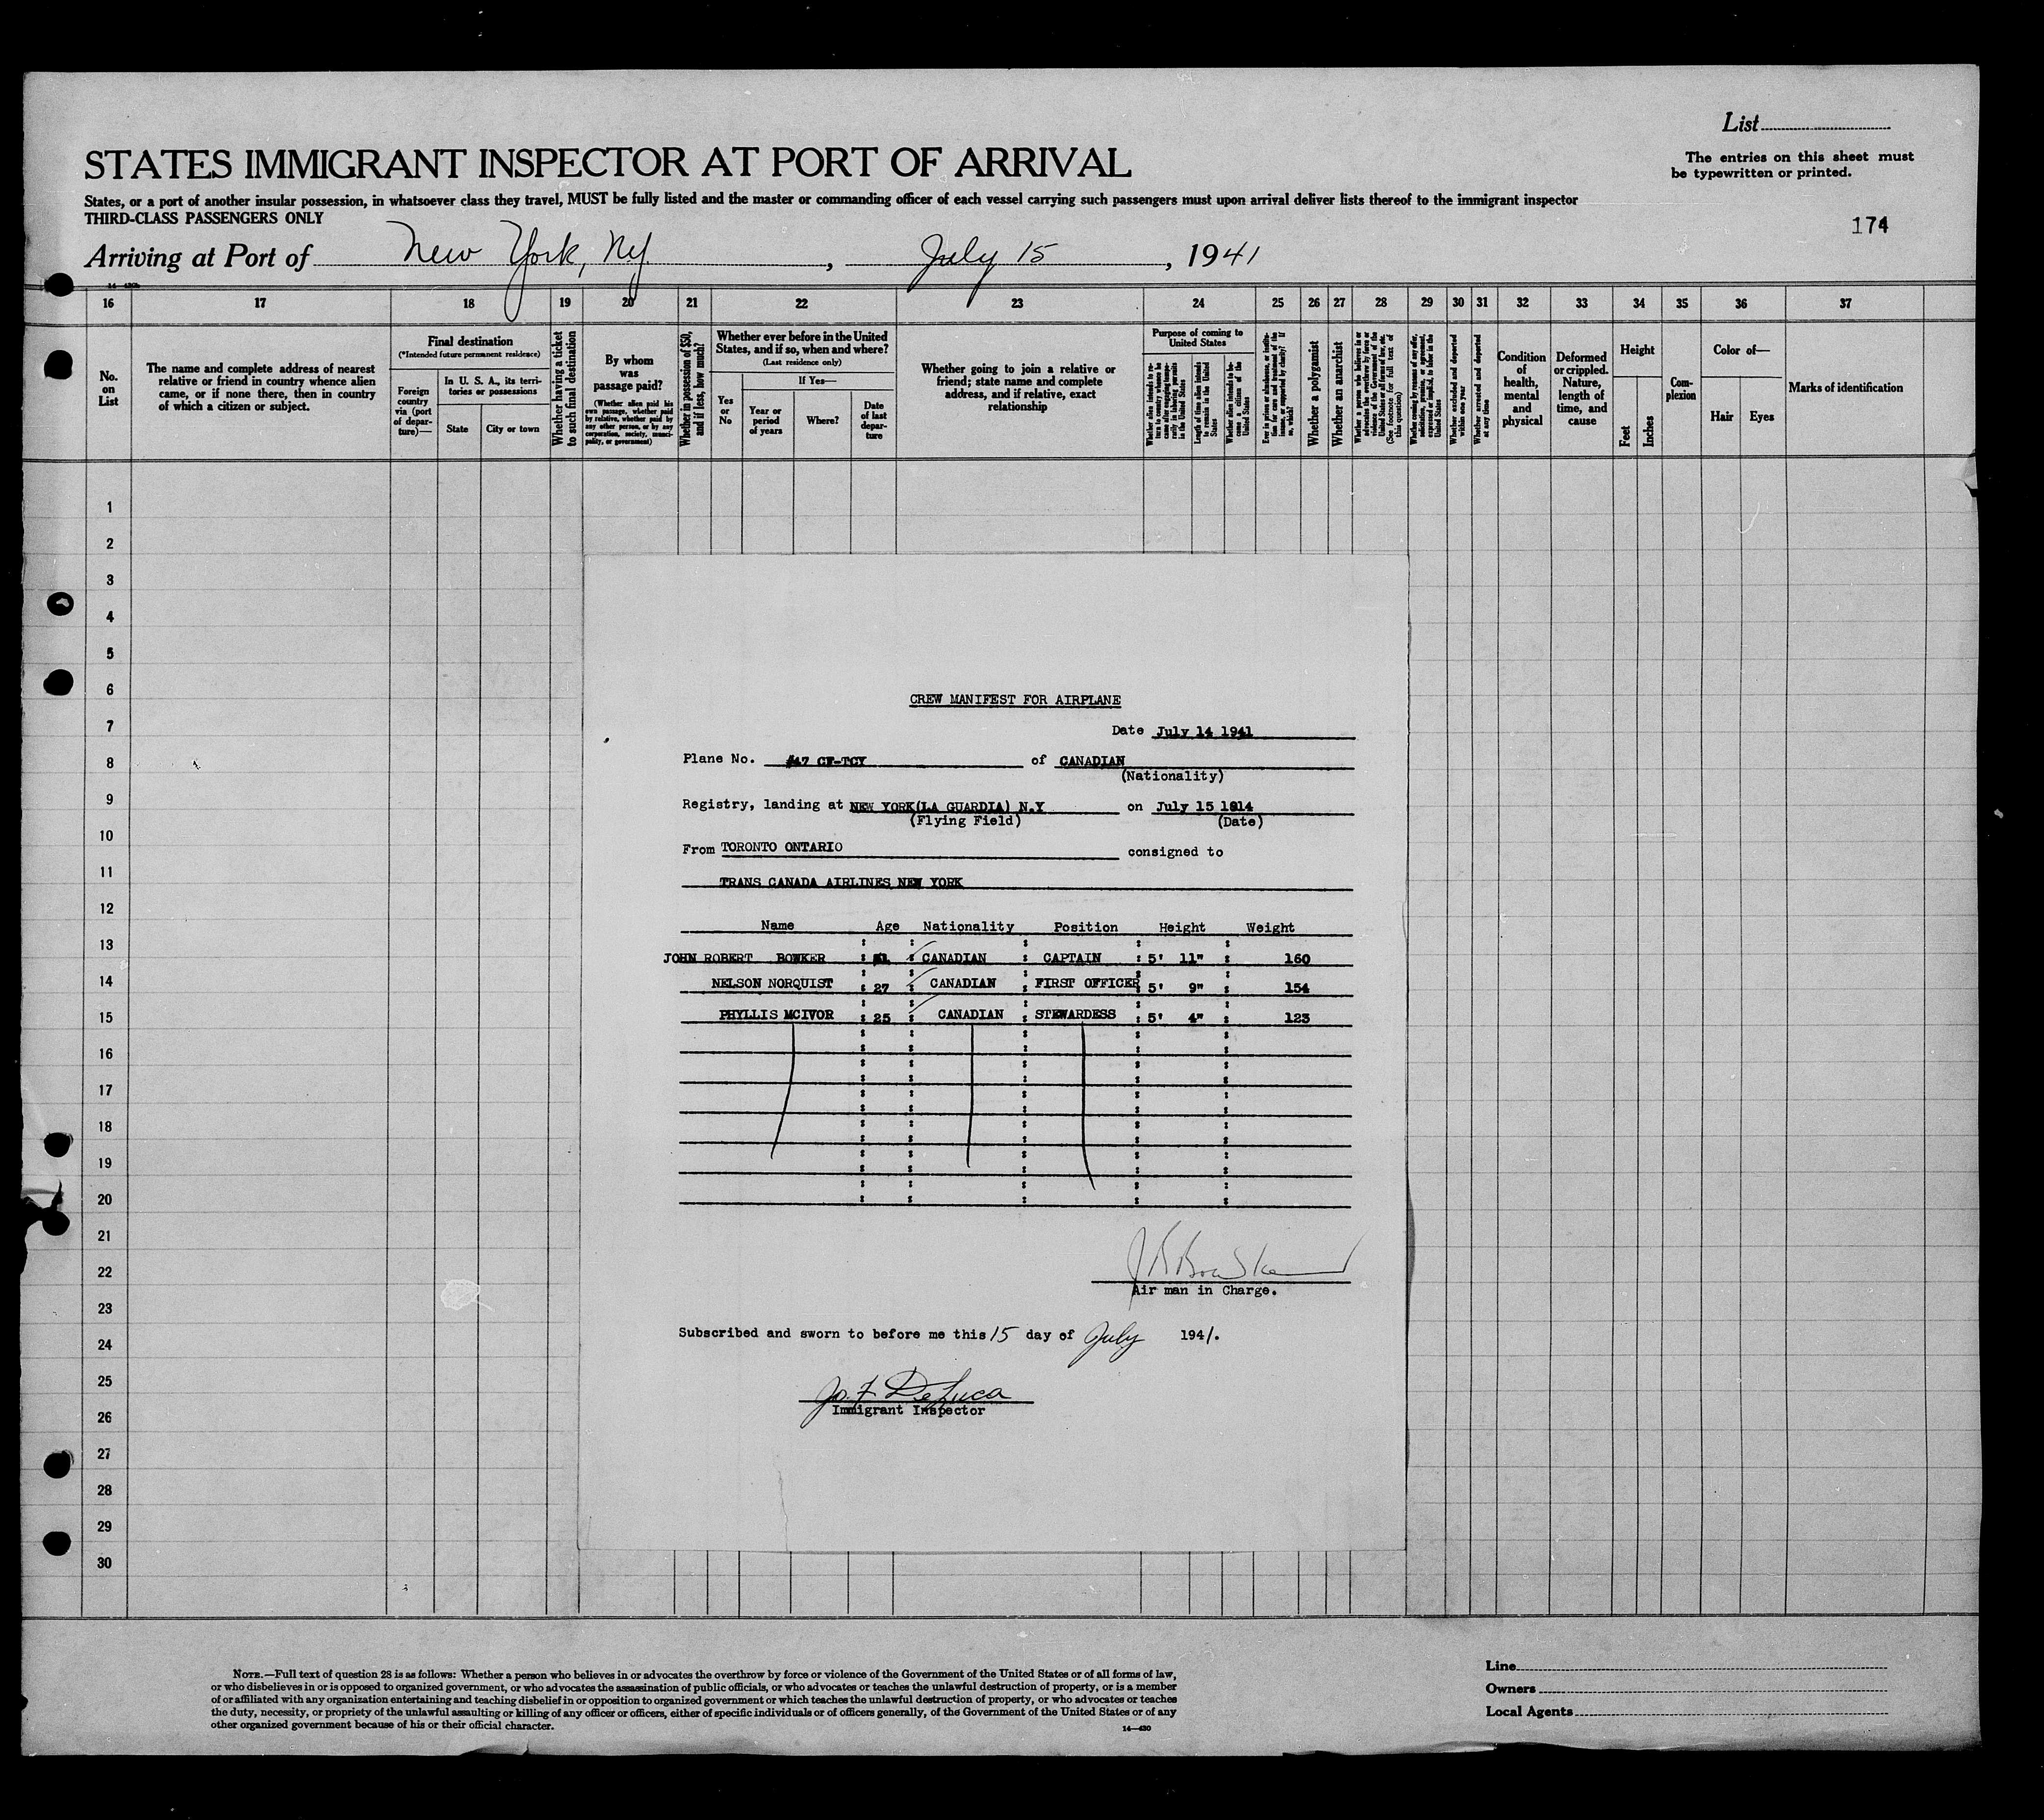 List
STATES IMMIGRANT INSPECTOR AT PORT OF ARRIVAL
The entries on this sheet must
be typewritten or printed.
States, or a port of another insular possession, in whatsoever class they travel, MUST be fully listed and the master or commanding officer of each vessel carrying such passengers must upon arrival deliver lists thereof to the immigrant inspector
THIRD-CLASS PASSENGERS ONLY
174
Arriving at Port of New York, NY. , July 15 , 1941
16 17 18 19 20 21 22 23 24 25 26 27 28 29 30 31 32 33 34 35 36 37
No.
on
List
The name and complete address of nearest
relative or friend in country whence alien
came, or if none there, then in country
of which a citizen or subject.
Final destination
(*Intended future permanent residence)
Foreign
country
via (port
of depar-
ture)—
In U. S. A., its terri-
tories or possessions
State
City or town
Whether having a ticket
to such final destination
By whom
was
passage paid?
(Whether alien paid his
own passage, whether paid
by relative, whether paid by
any other person, or by any
corporation, society, munici-
pality, or government)
Whether in possession of $50,
and if less, how much?
Whether ever before in the United
States, and if so, when and where?
(Last residence only)
Yes
or
No
If Yes—
Year or
period
of years
Where?
Date
of last
depar-
ture
Whether going to join a relative or
friend; state name and complete
address, and if relative, exact
relationship
Purpose of coming to
United States
Length of time alien intends
to remain in the United
States
Whether alien intends to be-
come a citizen of the
United States
Whether a polygamist
Whether an anarchist
Whether excluded and deported
within one year
Whether arrested and deported
at any time
Condition
of
health,
mental
and
physical
Deformed
or crippled.
Nature,
length of
time, and
cause
Height
Feet
Inches
Com-
plexion
Color of—
Hair
Eyes
Marks of identification
1
2
3
4
5
6
7
8
9
10
11
12
13
14
15
16
17
18
19
20
21
22
23
24
25
26
27
28
29
30
CREW MANIFEST FOR AIRPLANE
Date July 14 1941
Plane No. #47 CF-TCY of CANADIAN
(Nationality)
Registry, landing at NEW YORK(LA GUARDIA) N.Y on July 15
(Flying Field) (Date)
From TORONTO ONTARIO consigned to
TRANS CANADA AIRLINES NEW YORK
Name Age Nationality Position Height Weight
JOHN ROBERT BOWKER CANADIAN CAPTAIN 5' 11" 160
NELSON NORQUIST 27 CANADIAN FIRST OFFICER 5' 9" 154
PHYLLIS MCIVOR 25 CANADIAN STEWARDESS 5' 4" 123
Air man in Charge.
Subscribed and sworn to before me this 15 day of July 1941.
Jo. F. DeLuca
Immigrant Inspector
NOTE.—Full text of question 28 is as follows: Whether a person who believes in or advocates the overthrow by force or violence of the Government of the United States or of all forms of law,
or who disbelieves in or is opposed to organized government, or who advocates the assassination of public officials, or who advocates or teaches the unlawful destruction of property, or is a member
of or affiliated with any organization entertaining and teaching disbelief in or opposition to organized government or which teaches the unlawful destruction of property, or who advocates or teaches
the duty, necessity, or propriety of the unlawful assaulting or killing of any officer or officers, either of specific individuals or of officers generally, of the Government of the United States or of any
other organized government because of his or their official character.
14—430
Line
Owners
Local Agents